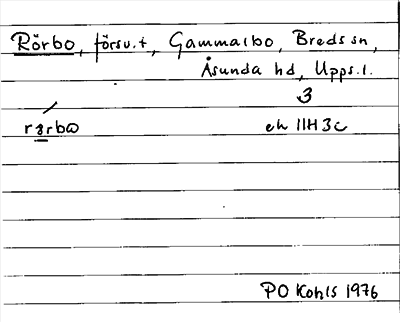 Rörbo, försv.t, Gammalbo, Breds sn,
Åsunda hd, Upps. l.
3
rərbɷ ek 11H 3c
PO Kohls 1976